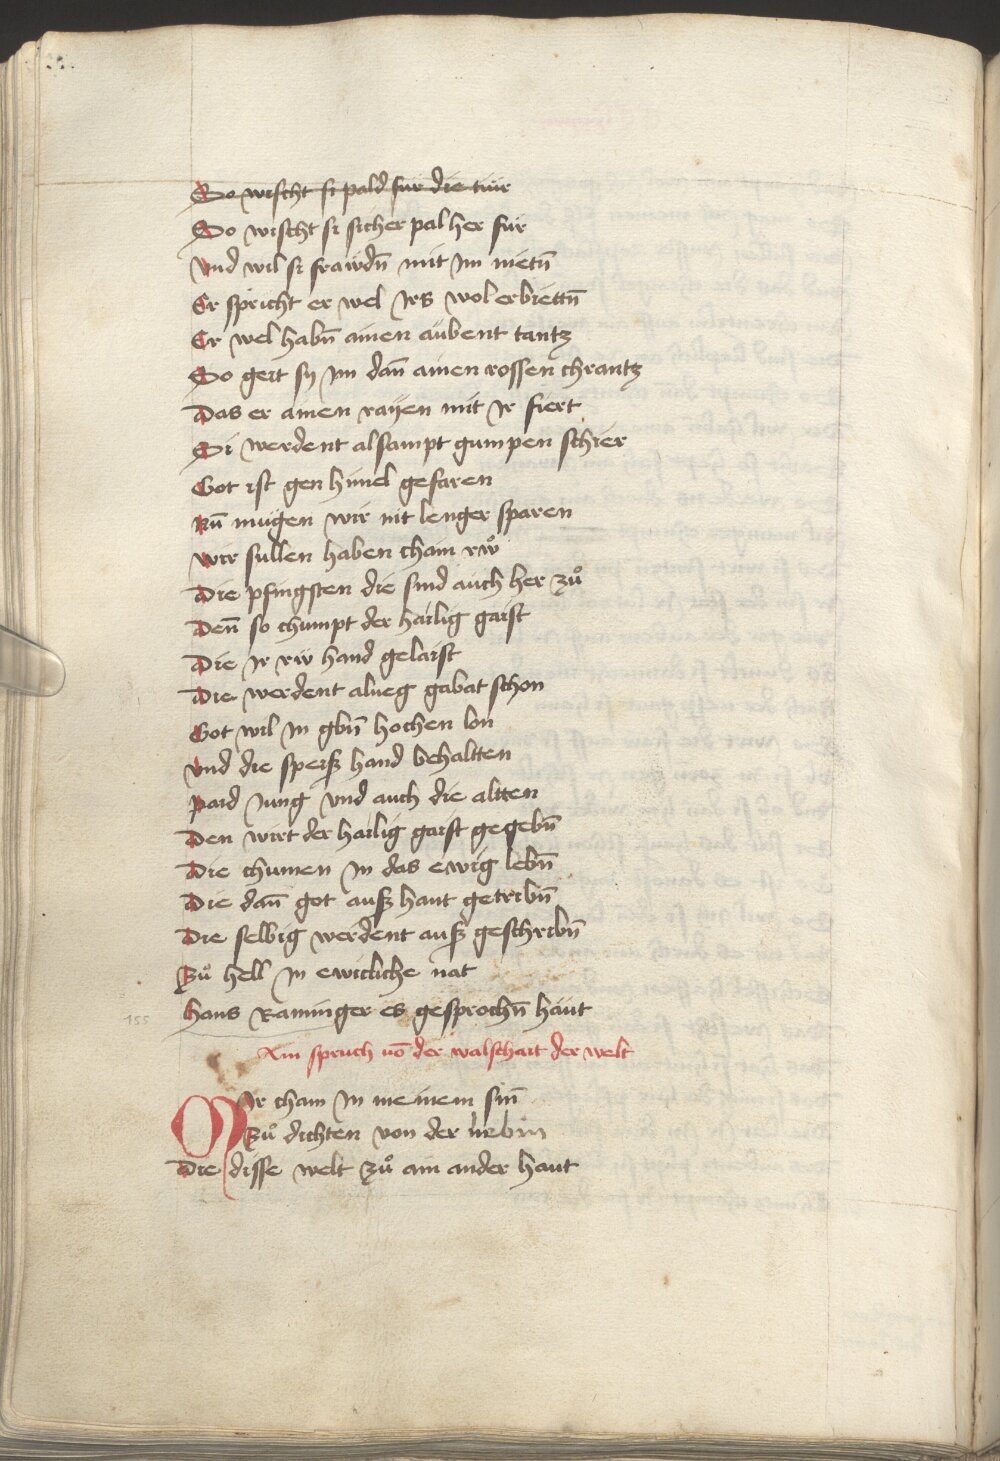 So wischt si pald für die tuür
So wischt si sicher pal her für
Vnd wil si fraẅdn̄ mit Jm nietn̄
Er spricht er wel Jrs wol erbiettn̄
Er wel habn̄ ainen aubent tantz
So gert sy Jm dan̄ ainen rossen chrantz
Das er ainen rayen mit Jr fiert
Si werdent alsampt gumpen schier
Got ist gen himel gefaren
Nū mügen wir nit lenger sparen
Wir sullen haben chain rẘ
Die pfingsten die sind auch her zů
Den̄ so chumpt der hailig gaist
Die Jr rẅ hand gelaist
Die werdent alueg gabat schon
Got wil Jn gbn̄ hochen lon
Vnd die speisz hand behaltten
Paid Jung vnd auch die altten
Den wirt der hailig gaist gegebn̄
Die chumen Jn das ewig lebn̄
Die dan̄ got ausz haut getribn̄
Die selbig werdent ausz geschribn̄
Zů hell Jn ewickliche nat
Hans Raminger es gesprochn̄ haut
155
Ain spruch vō der walfchart der welt
MIr cham Jn meinem sin̄
Zů dichten von der
Die disse welt zů ain ander haut